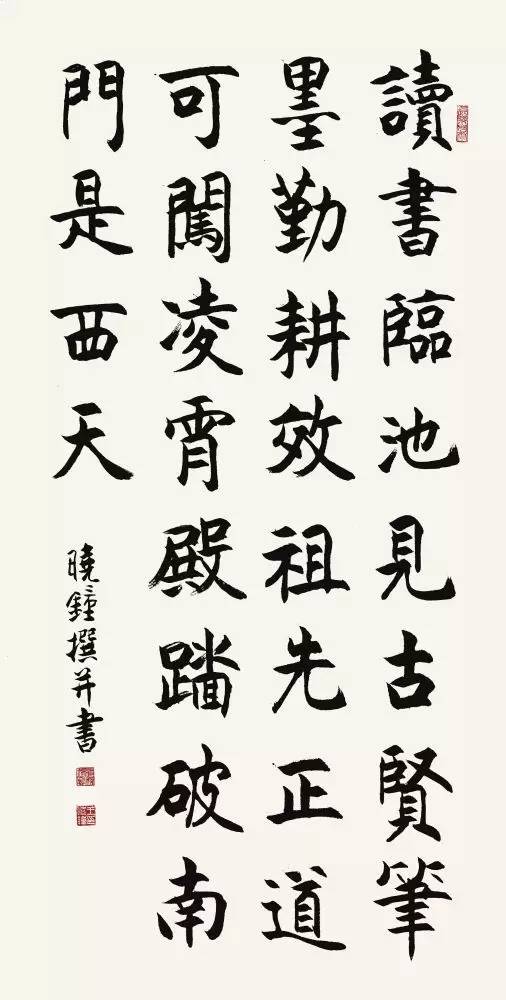 讀書臨池見古賢筆
墨勤耕效祖先正道
可闖凌霄殿踏破南
門是西天
曉鐘撰并書